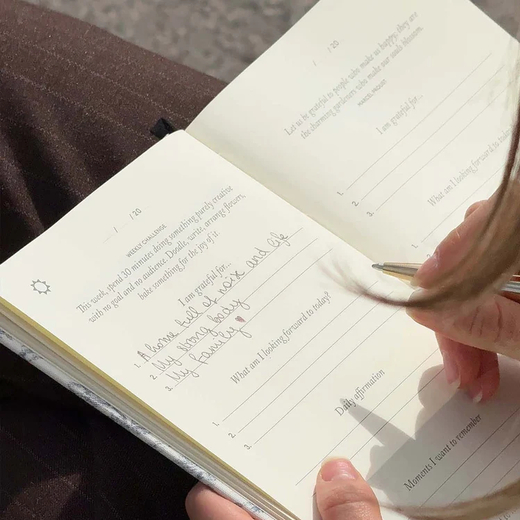 / /20
WEEKLY CHALLENGE
This week, spend 30 minutes doing something purely creative
with no goal and no audience. Doodle, write, arrange flowers,
bake something for the joy of it.
I am grateful for...
1. A house full of noix and life
2. My strong body
3. My family
What am I looking forward to today?
1.
2.
3.
Daily affirmation
Moments I want to remember
/ /20
Let us be grateful to people who make us happy; they are
the charming gardeners who make our souls blossom.
MARCEL PROUST
I am grateful for...
1.
2.
3.
What am I looking forward to today?
1.